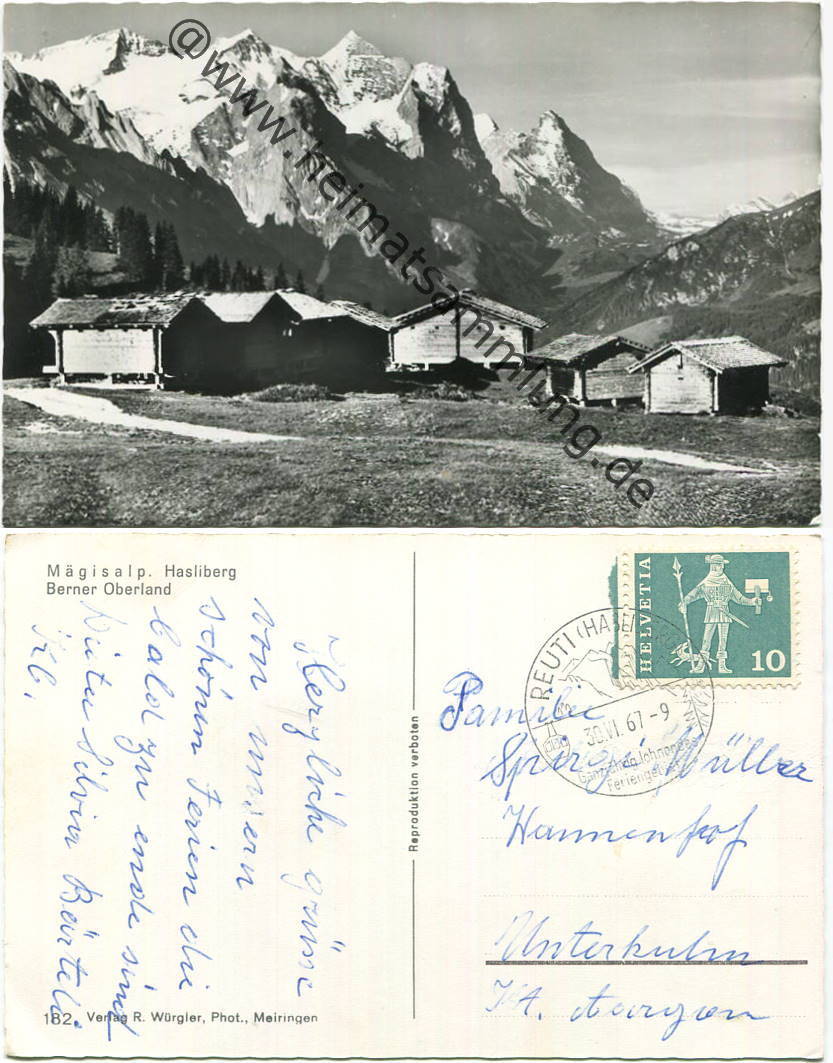 @www.heimatsammlung.de
Mägisalp. Hasliberg
Berner Oberland
Herzliche grüsse
von unsern
schönen Ferien die
bald zu ende sind
Silvia
182 Verlag R. Würgler, Phot., Meiringen
Reproduktion verboten
HELVETIA
10
REUTI (HASLIBERG)
30.VI.67-9
Ganzjährig lohnendes
Feriengebiet
Familie
Müller
Wannenhof
Unterkulm
Kt. Aargau